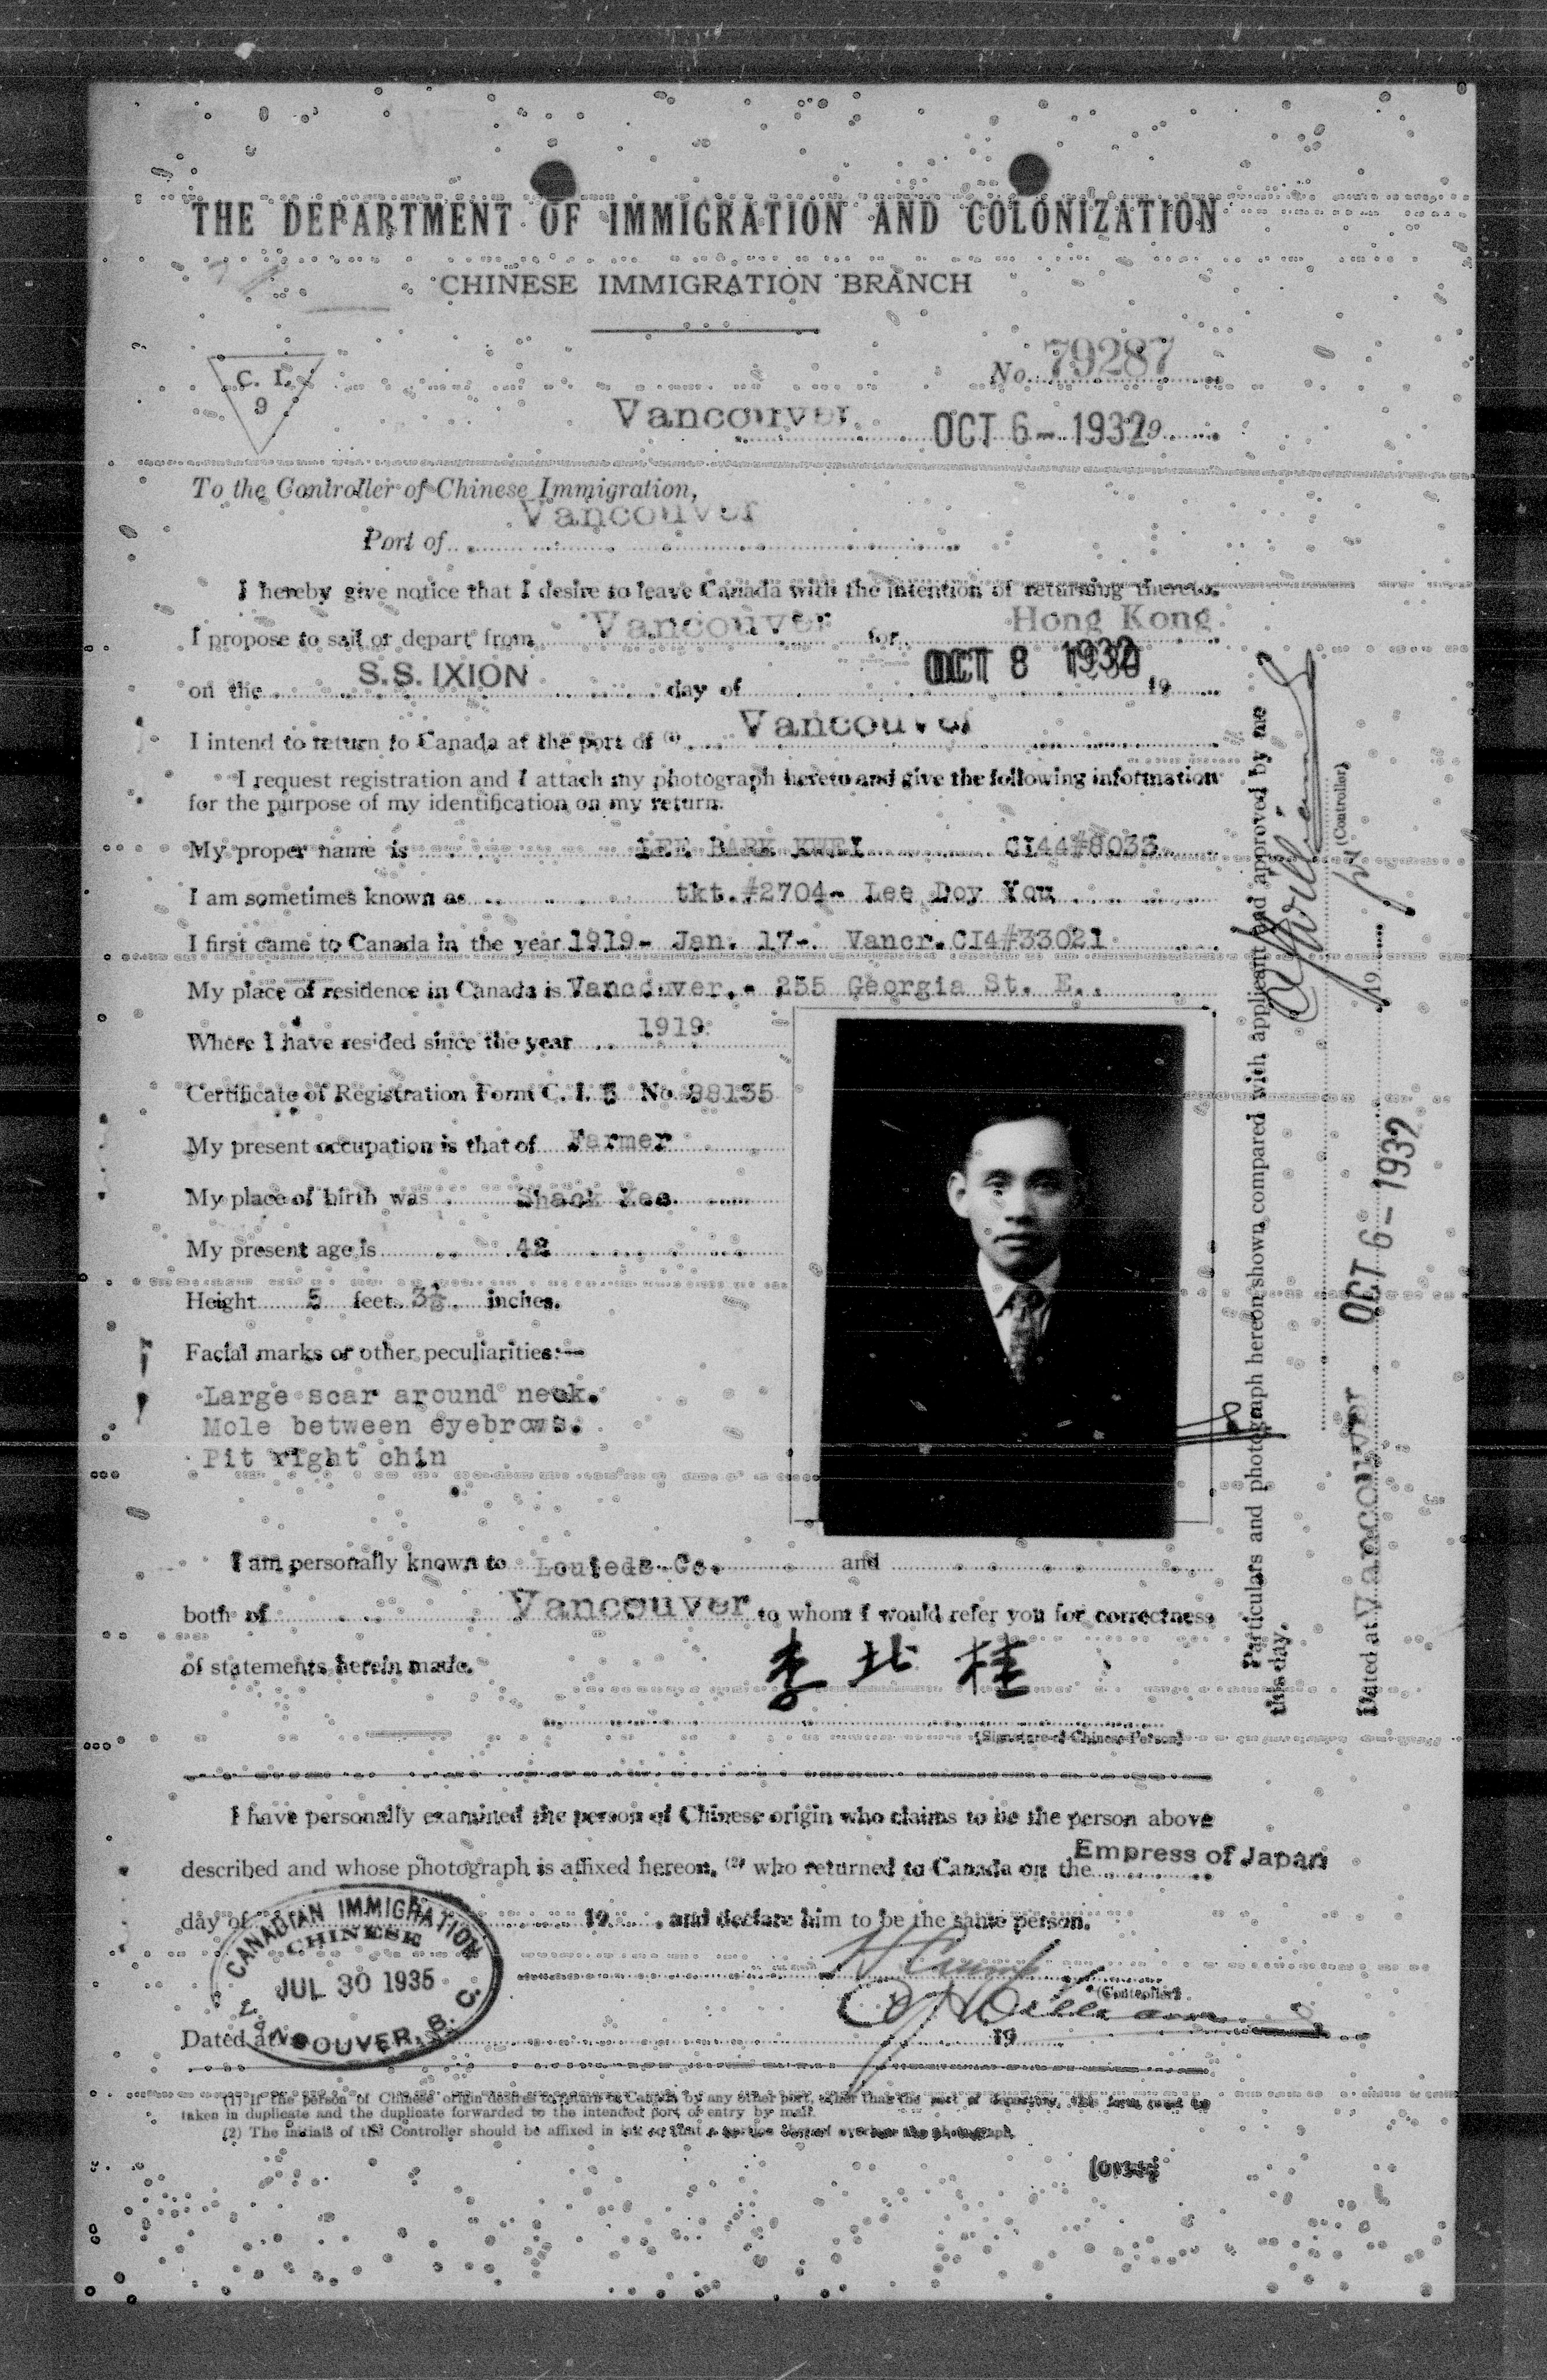 THE DEPARTMENT OF IMMIGRATION AND COLONIZATION
CHINESE IMMIGRATION BRANCH
C. I.
9
No. 79287
Vancouver OCT 6 - 1932 19
To the Controller of Chinese Immigration,
Port of Vancouver
I hereby give notice that I desire to leave Canada with the intention of returning thereto.
I propose to sail or depart from Vancouver for Hong Kong
on the S.S. IXION day of OCT 8 1932 19
I intend to return to Canada at the port of (1) Vancouver
I request registration and I attach my photograph hereto and give the following information
for the purpose of my identification on my return.
My proper name is LEE BARK KWEI CI44#8033
I am sometimes known as tkt.#2704- Lee Doy You
I first came to Canada in the year 1919- Jan. 17-. Vancr. CI4#33021
My place of residence in Canada is Vancouver,- 235 Georgia St. E.
Where I have resided since the year 1919
Certificate of Registration Form C. I. 5 No. 98135
My present occupation is that of Farmer
My place of birth was Shack Kee
My present age is 42
Height 5 feet 3½ inches.
Facial marks or other peculiarities:—
Large scar around neck.
Mole between eyebrows.
Pit right chin
I am personally known to Co. and
both of Vancouver to whom I would refer you for correctness
of statements herein made.
李北桂
(Signature of Chinese Person)
I have personally examined the person of Chinese origin who claims to be the person above
described and whose photograph is affixed hereon, (2) who returned to Canada on the Empress of Japan
day of 19 , and declare him to be the same person.
(Controller)
Dated at 19
CANADIAN IMMIGRATION
CHINESE
JUL 30 1935
VANCOUVER, B. C.
(1) If the person of Chinese origin desires to return to Canada by any other port, other than the port of departure, this form must be
taken in duplicate and the duplicate forwarded to the intended port of entry by mail.
(2) The initials of the Controller should be affixed in ink so that a portion thereof overlaps the photograph.
[OVER]
Particulars and photograph hereon shown compared with applicant and approved by me
this day.
(Controller)
Dated at Vancouver OCT 6 - 1932 19